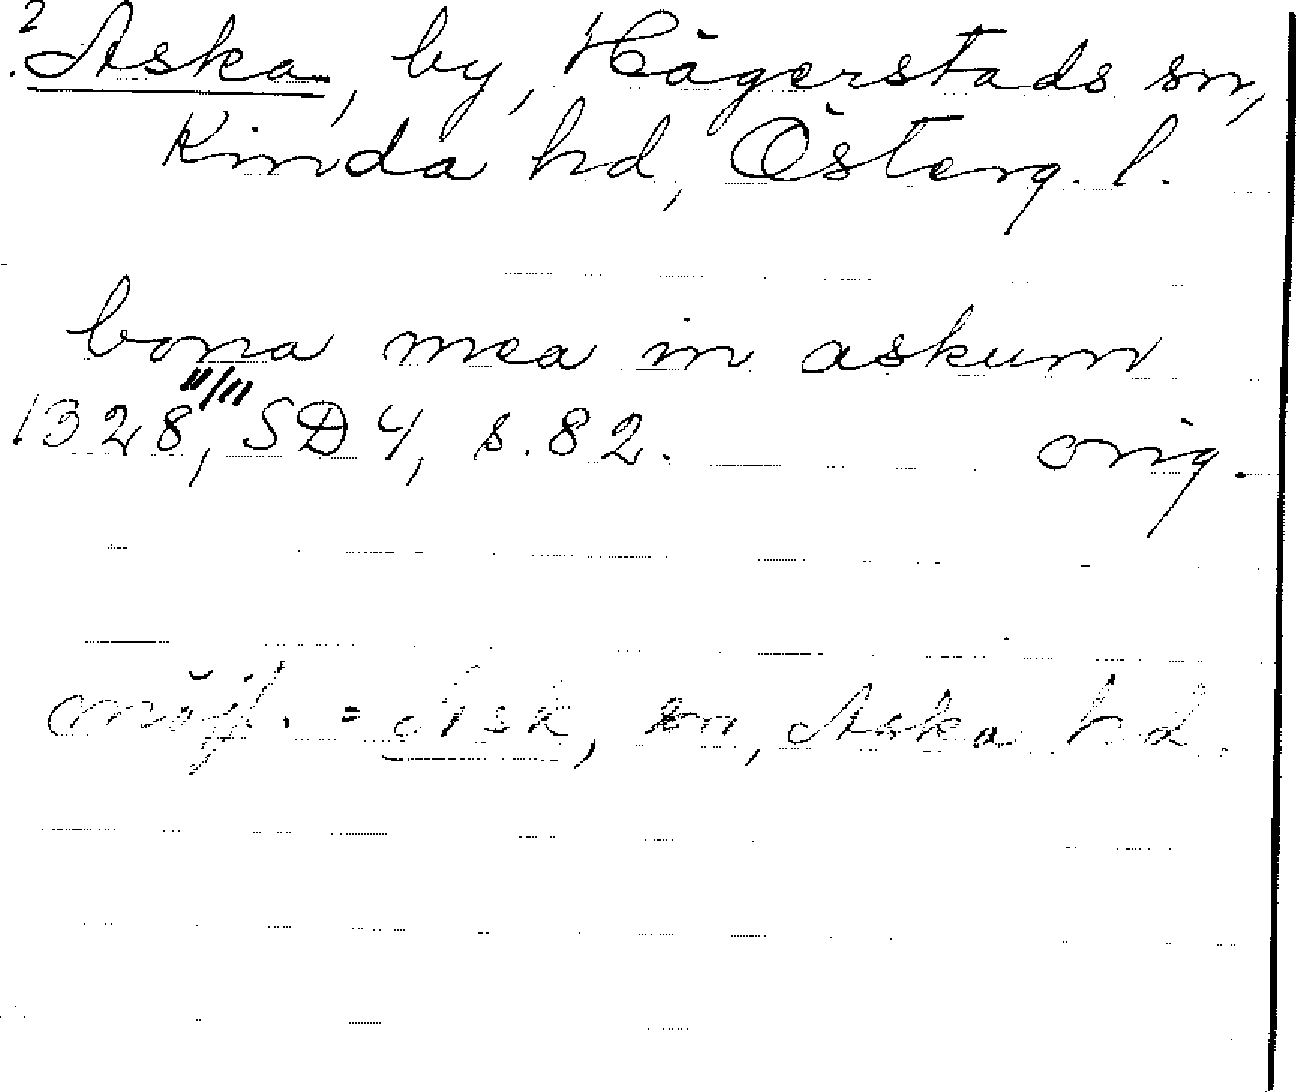 2. Aska, by, Hägerstads sn,
Kinda hd, Österg. l.
bona mea in askum
1328 11/11, SD 4, s. 82. orig.
möjl. = Ask, sn, Aska hd.